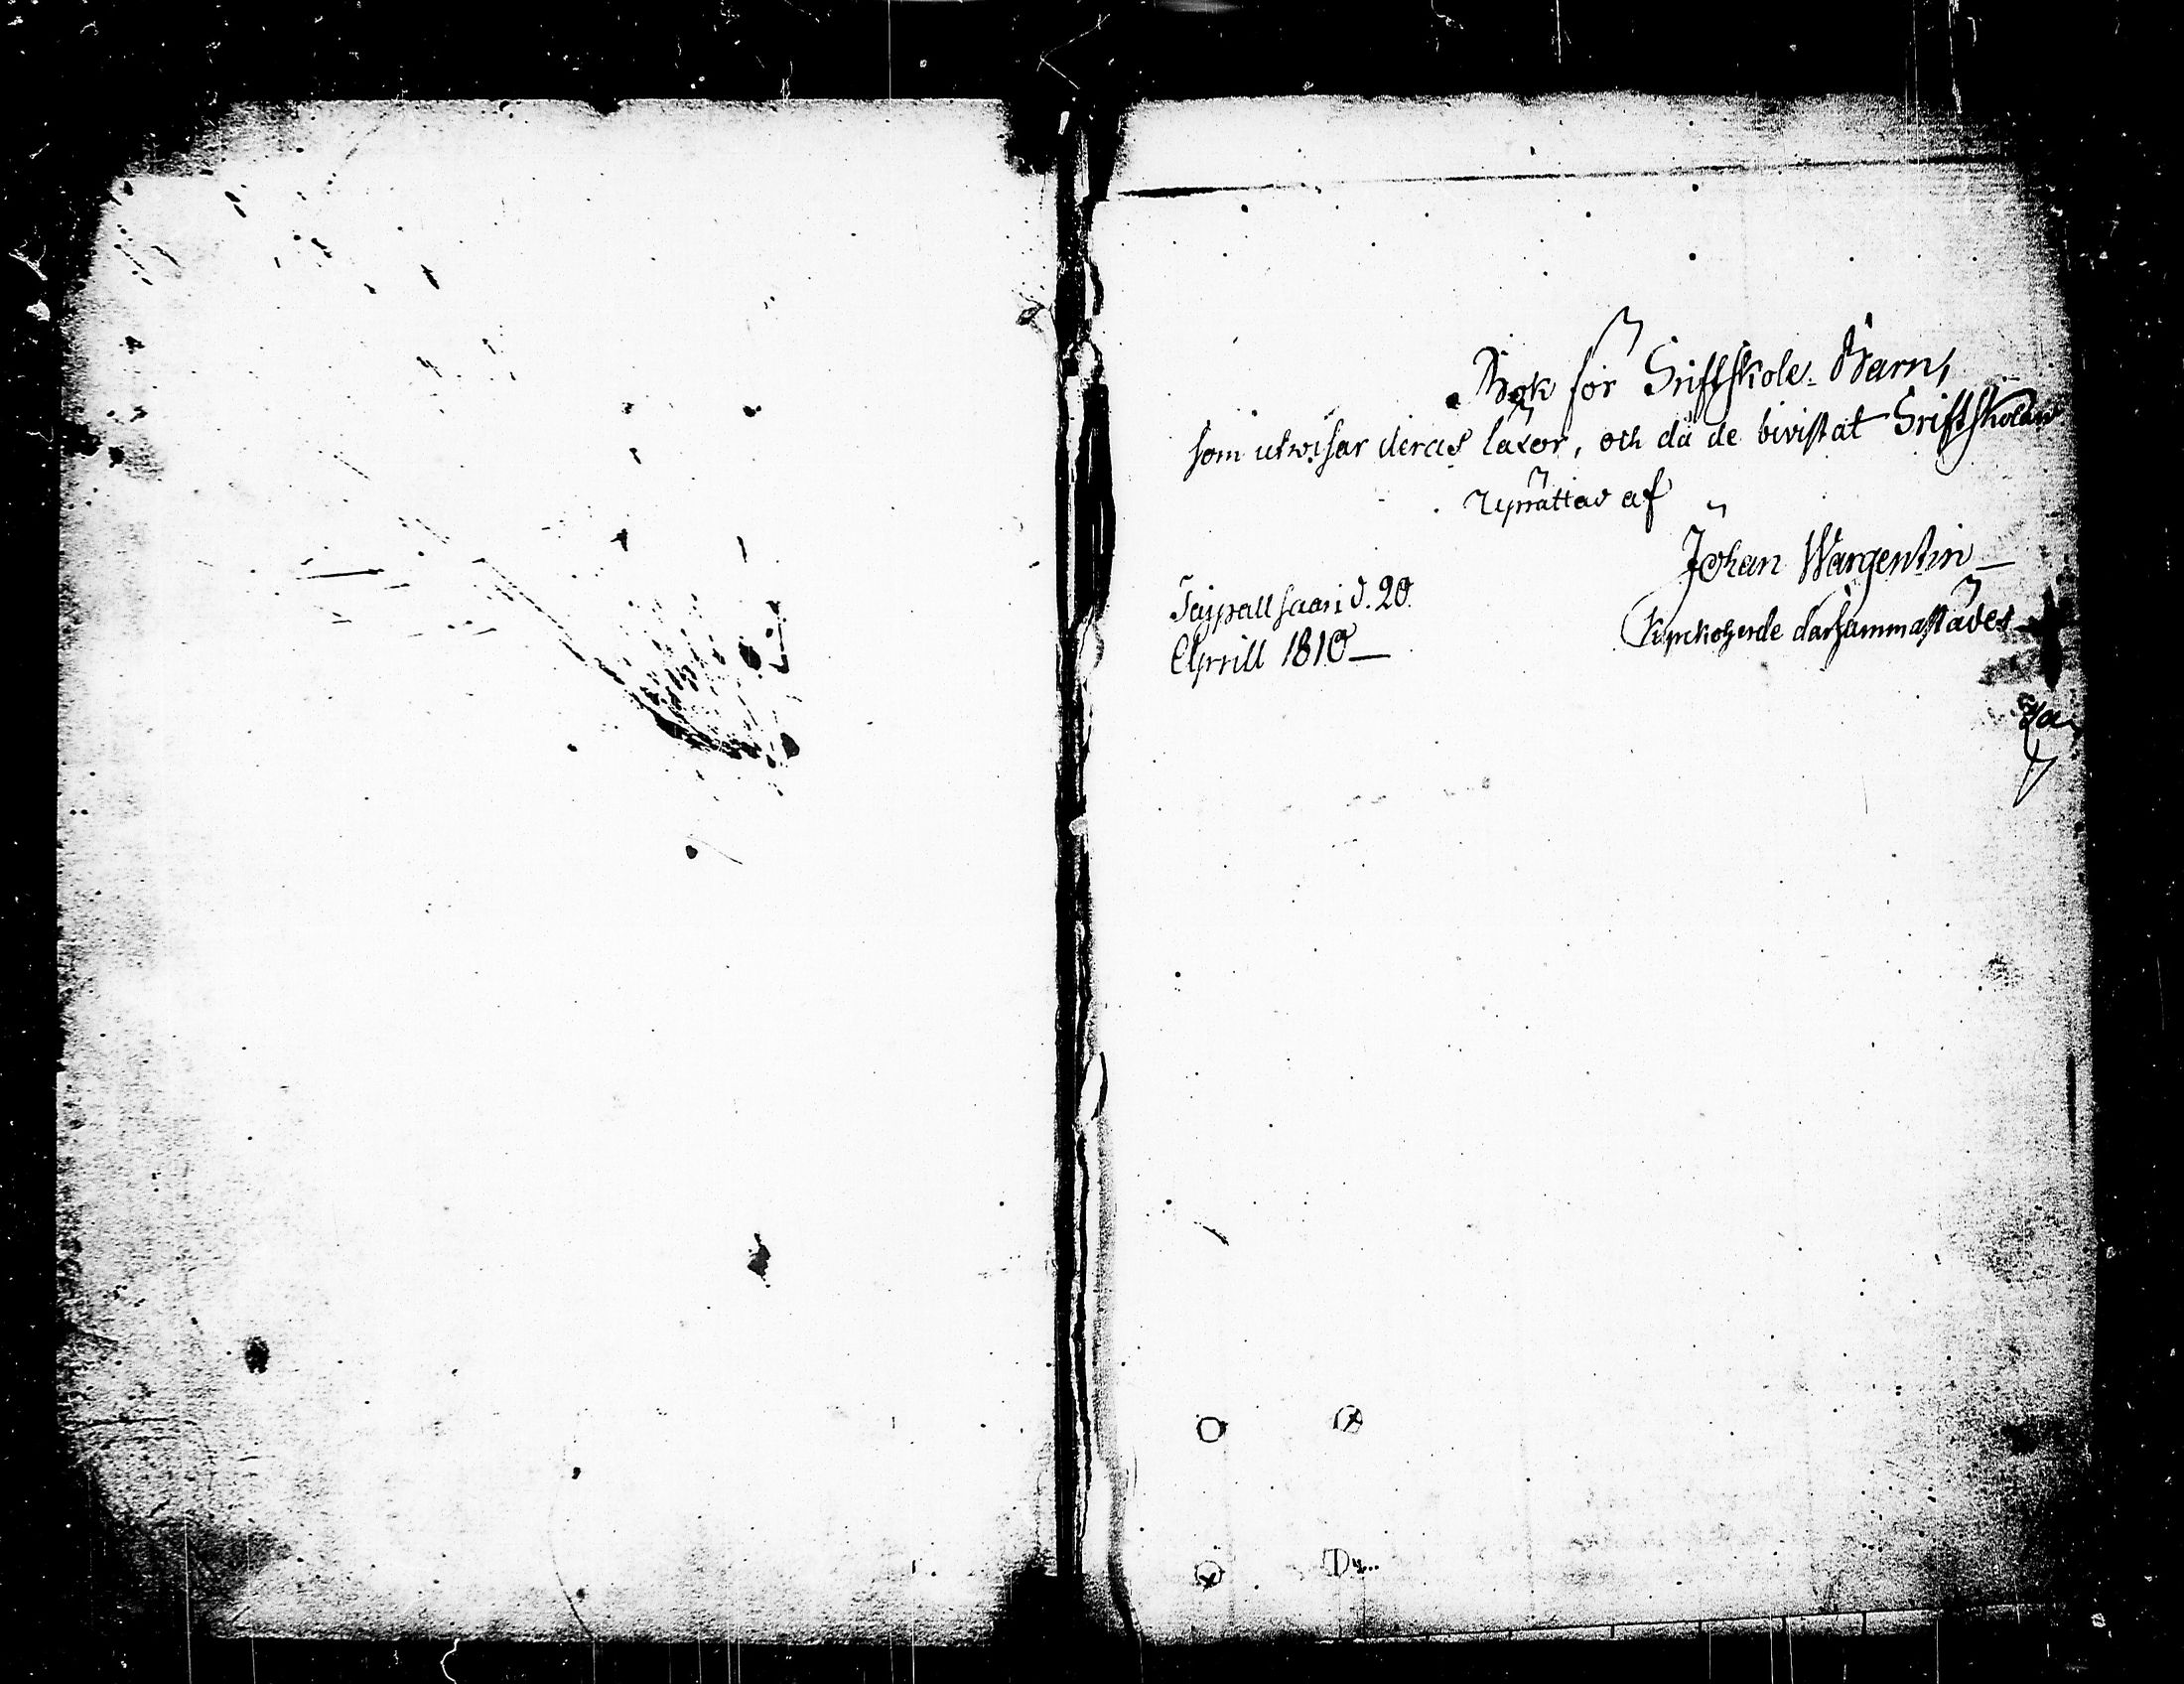 Bok för Sriftskole-Barn,
som utwisar deras läxor, och då de bivistat Sriftskolan
Uprättad af
Johan Wargentin
Kyrckoherde därsammastädes
Taipallsaari d. 20
Aprill 1810